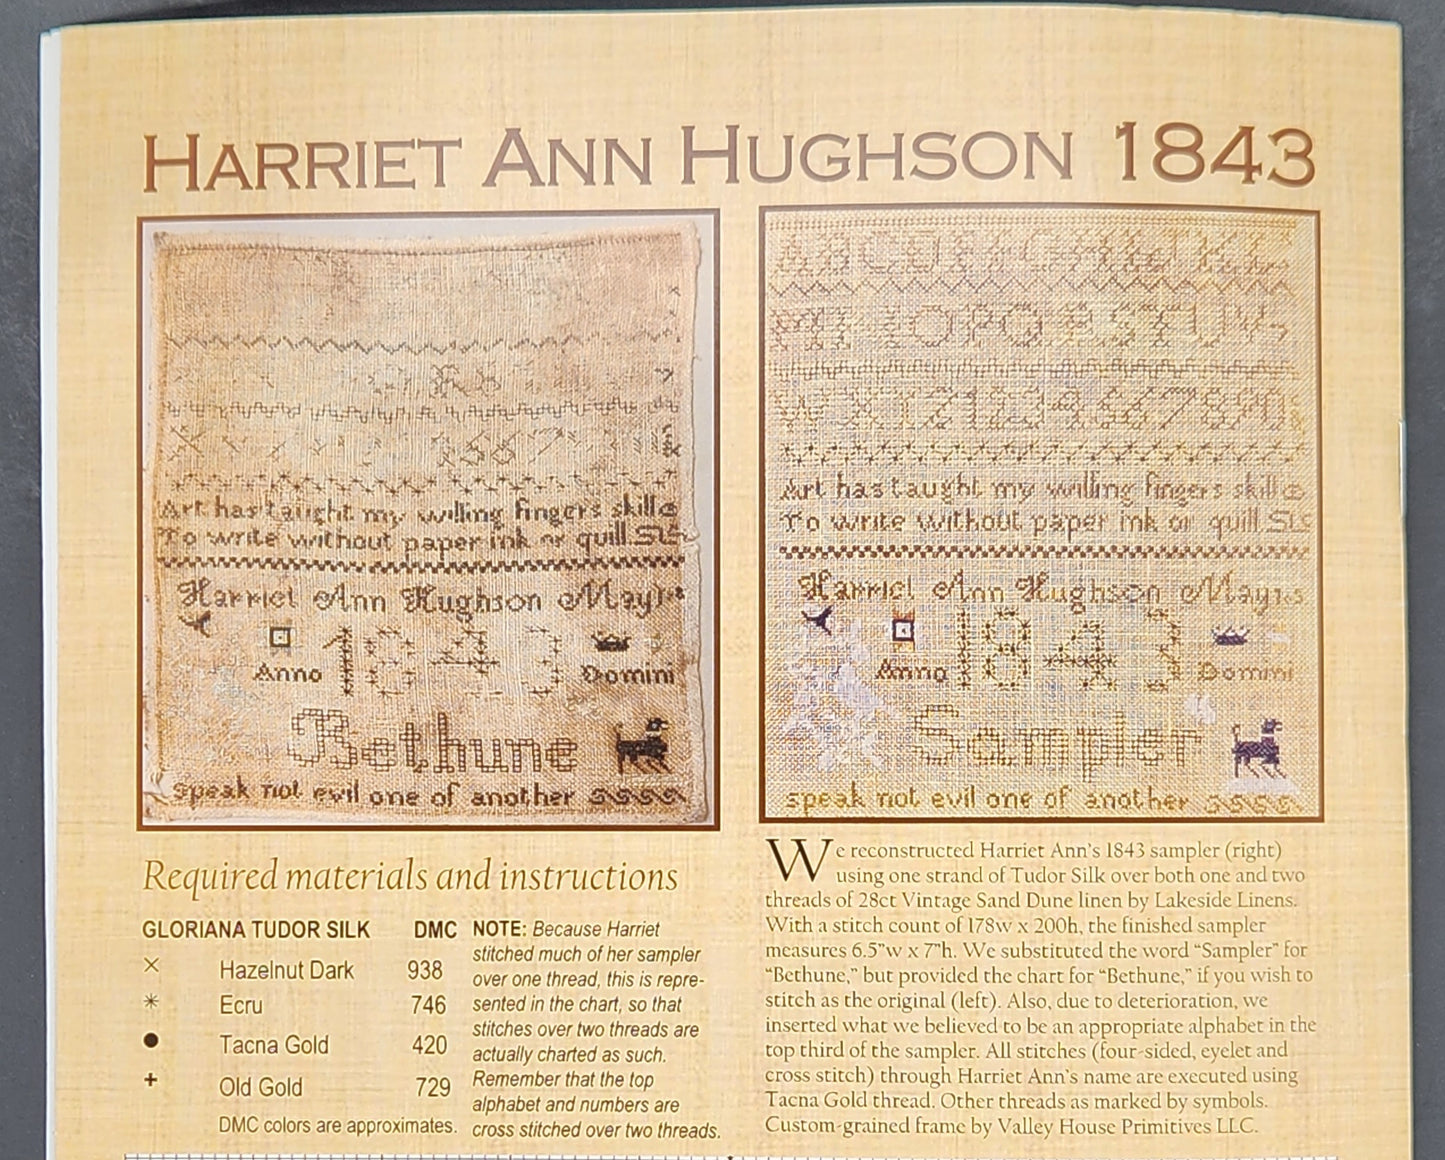 HARRIET ANN HUGHSON 1843
Art has taught my willing fingers skill
To write without paper ink or quill
Harriet Ann Hughson
Anno 1843 Domini
Bethune
speak not evil one of another
Art has taught my willing fingers skill
To write without paper ink or quill
Harriet Ann Hughson
Anno 1843 Domini
Sampler
speak not evil one of another
Required materials and instructions
GLORIANA TUDOR SILK DMC
× Hazelnut Dark 938
✳ Ecru 746
● Tacna Gold 420
+ Old Gold 729
DMC colors are approximates.
NOTE: Because Harriet
stitched much of her sampler
over one thread, this is repre-
sented in the chart, so that
stitches over two threads are
actually charted as such.
Remember that the top
alphabet and numbers are
cross stitched over two threads.
We reconstructed Harriet Ann's 1843 sampler (right)
using one strand of Tudor Silk over both one and two
threads of 28ct Vintage Sand Dune linen by Lakeside Linens.
With a stitch count of 178w x 200h, the finished sampler
measures 6.5"w x 7"h. We substituted the word "Sampler" for
"Bethune," but provided the chart for "Bethune," if you wish to
stitch as the original (left). Also, due to deterioration, we
inserted what we believed to be an appropriate alphabet in the
top third of the sampler. All stitches (four-sided, eyelet and
cross stitch) through Harriet Ann's name are executed using
Tacna Gold thread. Other threads as marked by symbols.
Custom-grained frame by Valley House Primitives LLC.